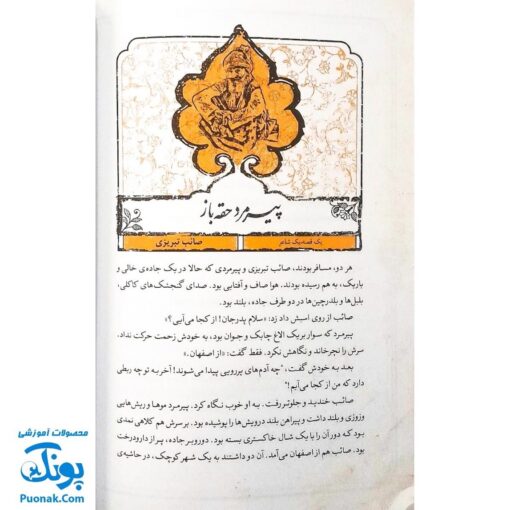 پیرمرد حقه‌باز
یک قصه‌یک شاعر
صائب تبریزی
هر دو، مسافر بودند، صائب تبریزی و پیرمردی که حالا در یک جاده‌ی خالی و
باریک، به هم رسیده بودند. هوا صاف و آفتابی بود. صدای گنجشک‌های کاکلی،
بلبل‌ها و بلدرچین‌ها در دو طرف جاده، بلند بود.
صائب از روی اسبش داد زد: «سلام پدرجان! از کجا می‌آیی؟»
پیرمرد که سوار بر یک الاغ چابک و جوان بود، به خودش زحمت حرکت نداد.
سرش را نچرخاند و نگاهش نکرد. فقط گفت: «از اصفهان.»
بعد به خودش گفت، "چه آدم‌های پررویی پیدا می‌شوند! آخر به تو چه ربطی
دارد که من از کجا می‌آیم!"
صائب خندید و جلوتر رفت. به او خوب نگاه کرد. پیرمرد موها و ریش‌هایی
وزوزی و بلند داشت و پیراهن بلند درویش‌ها را پوشیده بود. بر سرش هم کلاهی نمدی
بود که دور آن را با یک شال خاکستری بسته بود. دور و بر جاده، پر از دار و درخت
بود. صائب هم از اصفهان می‌آمد. آن دو داشتند به یک شهر کوچک، در حاشیه‌ی
محصولات آموزشی
پونک
Puonak.Com